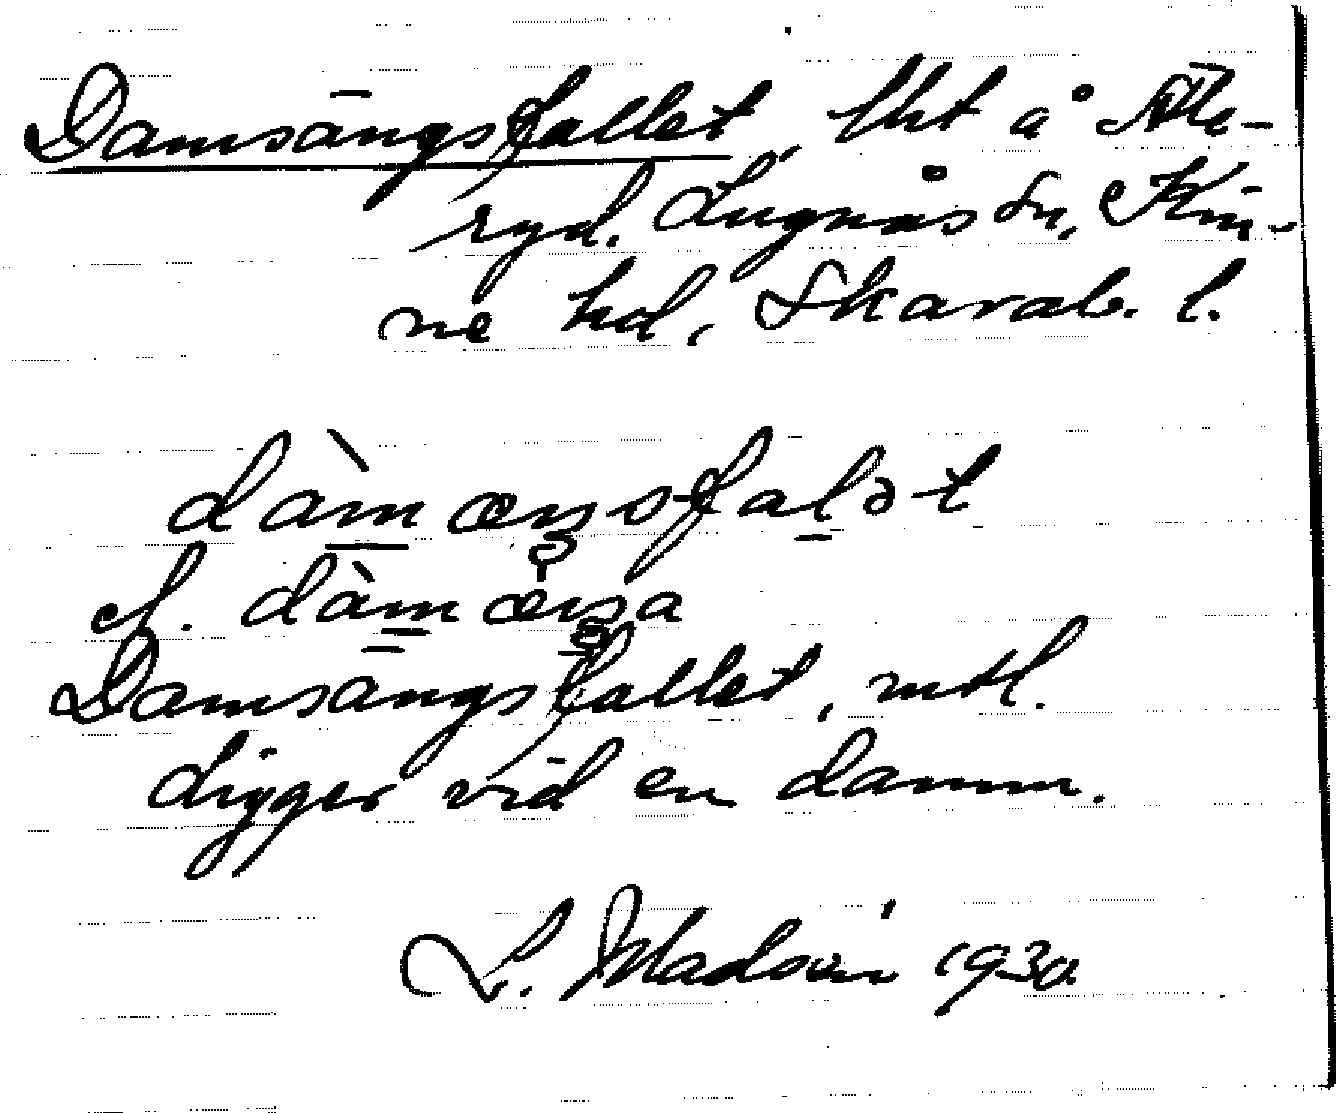 Damsängsfallet, lht å Åte-
ryd. Lugnås sn, Kin-
ne hd, Skarab. l.
dàmæŋsfalət
cf. dàmæŋa
Damsängsfallet, mtl.
Ligger vid en damm.
L. Madsén 1930.